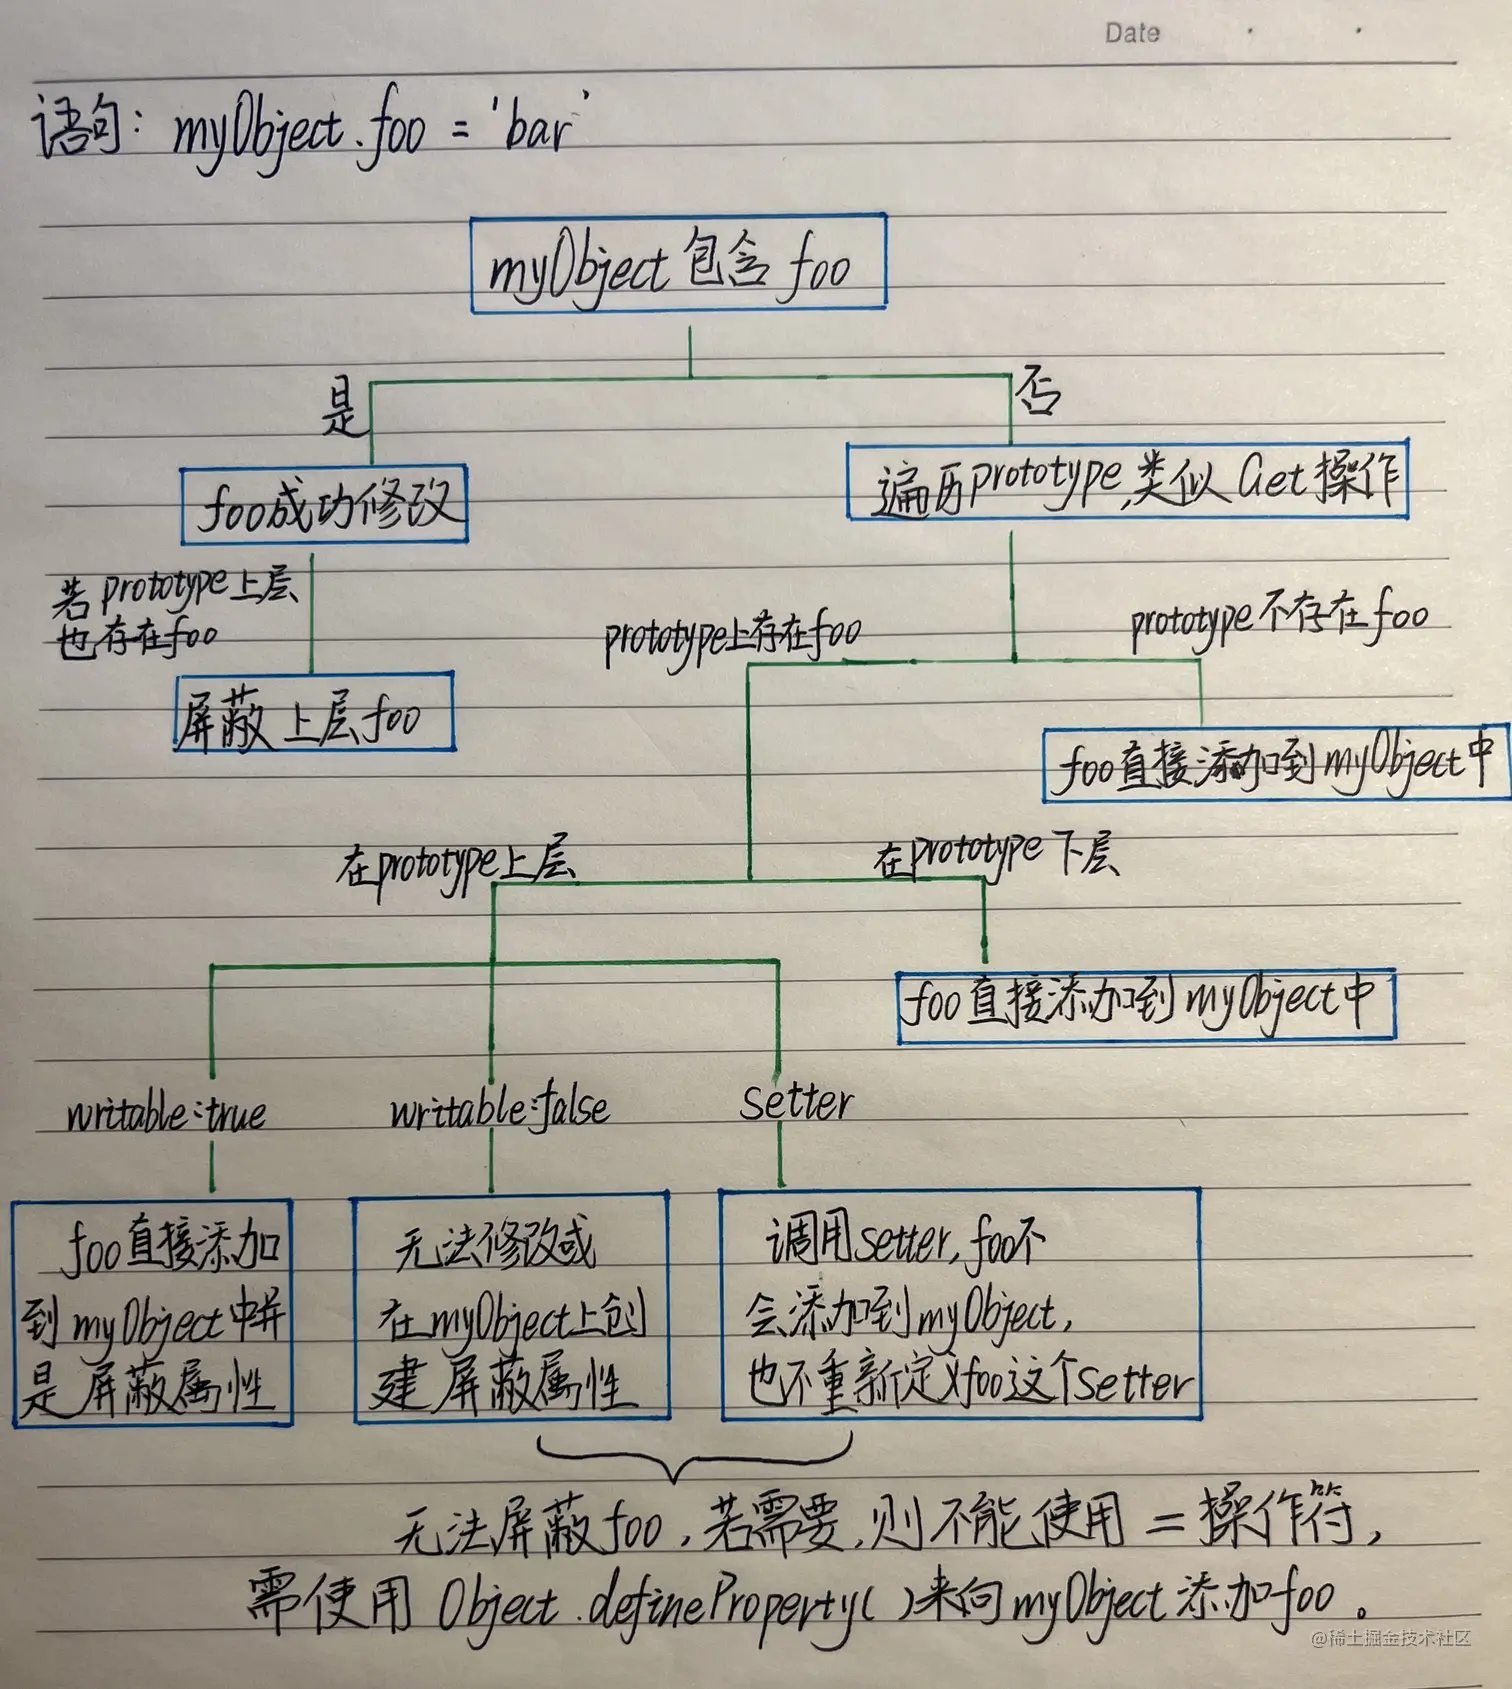 Date
语句: myObject.foo = 'bar'
myObject 包含 foo
是
否
foo成功修改
遍历prototype,类似 Get 操作
若prototype上层
也存在foo
prototype上存在foo
prototype不存在foo
屏蔽上层foo
foo直接添加到myObject中
在prototype上层
在prototype下层
foo直接添加到myObject中
writable:true
writable:false
setter
foo直接添加
到myObject中并
是屏蔽属性
无法修改或
在myObject上创
建屏蔽属性
调用setter,foo不
会添加到myObject,
也不重新定义foo这个setter
无法屏蔽foo,若需要,则不能使用=操作符,
需使用 Object.defineProperty()来向myObject添加foo。
@稀土掘金技术社区